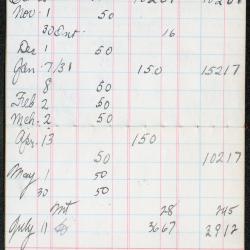 Nov. 1 50
30 Int. 16
Dec 1 50
Jan 7/31 150 15217
8 50
Feb 2 50
Mch. 2 50
Apr. 13 150
50 10217
May 1 50
30 50
Int 28 245
July 11 3667 2912